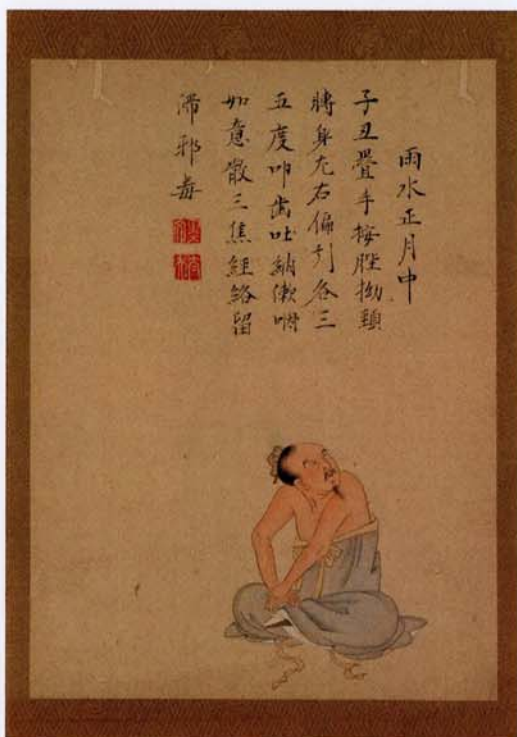 雨水正月中
子丑疊手按脛拗頸
轉身左右偏引各三
五度叩齒吐納漱咽
如意散三焦經絡留
滯邪毒